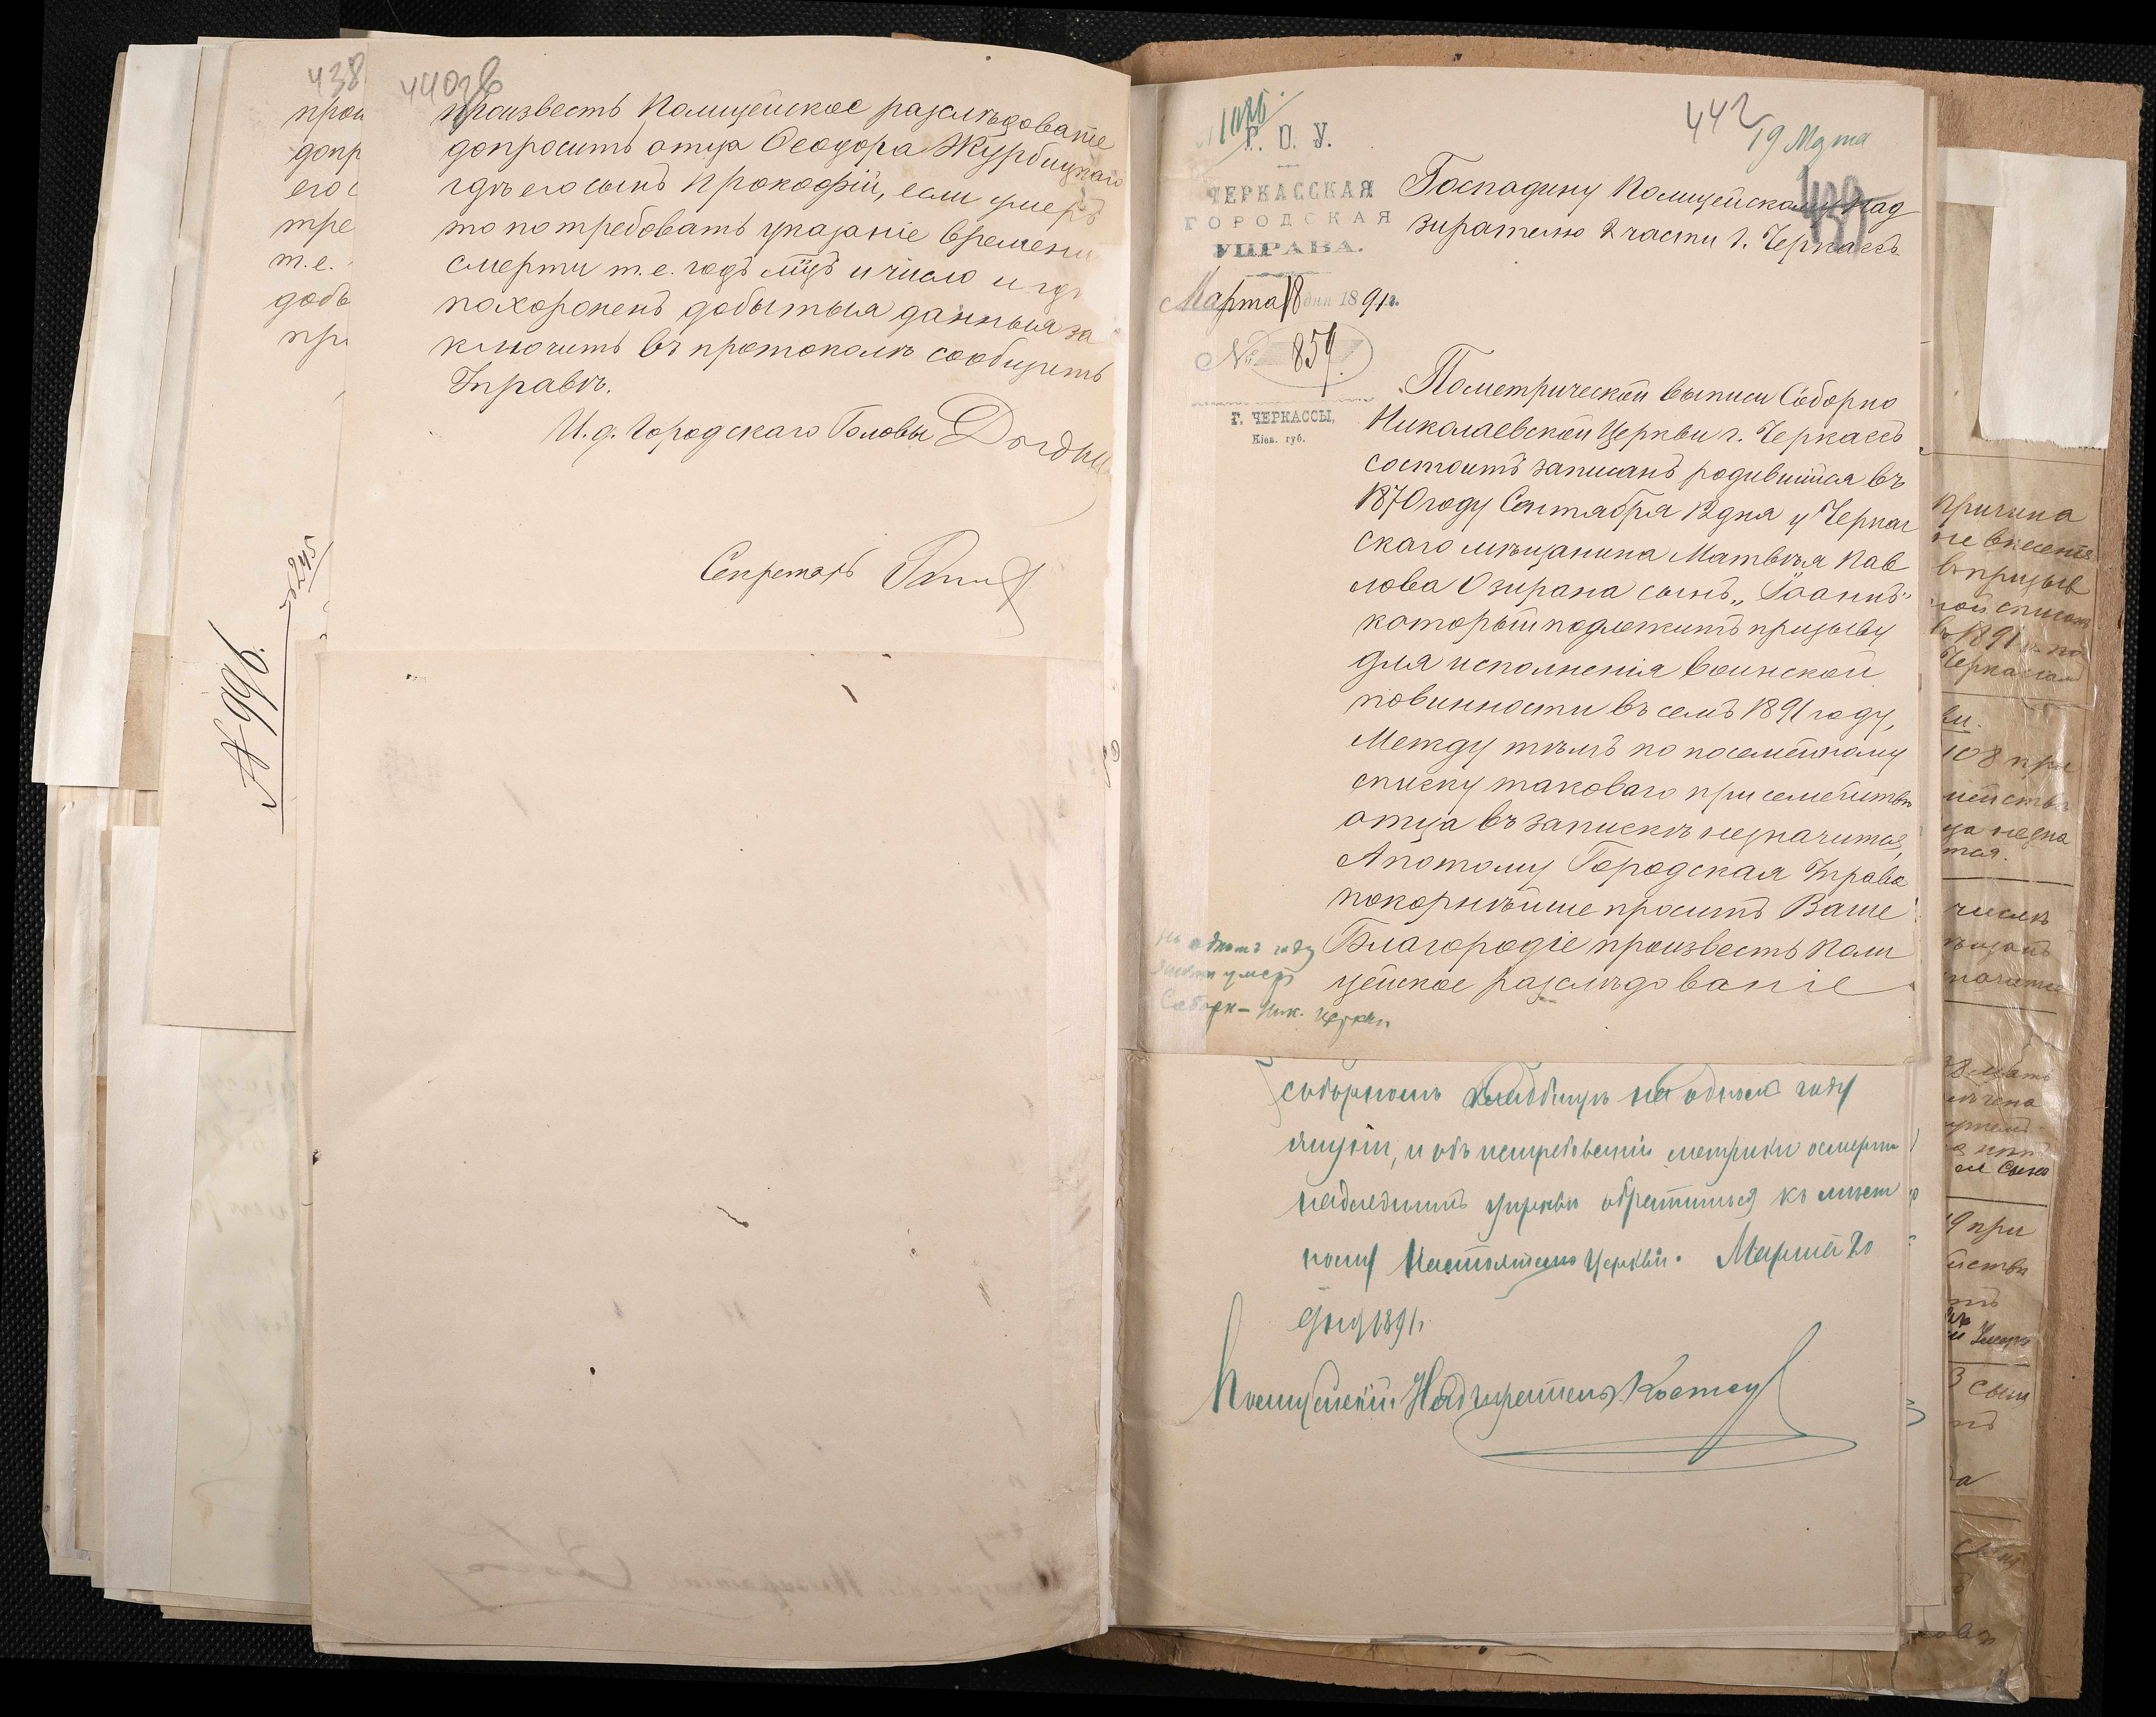 438
440 об
произвесть Полицейское разслѣдованіе
допросить отца Ѳеодора Журбицкаго
гдѣ его сынъ Прокофій, если умеръ
то потребовать указаніе времени
смерти т.е. годъ мцъ и число и гдѣ
похороненъ добытыя данныя за
ключить въ протоколѣ сообщить
Управѣ.
И.д. Городскаго Головы
Секретарь
прои
допр
его с
тре
т.е.
добы
при
№ 996.
442
19 Марта
1026
Г. О. У.
ЧЕРКАССКАЯ
ГОРОДСКАЯ
УПРАВА.
Марта 18 дня 1891 г.
№ 859.
Г. ЧЕРКАССЫ,
Кіев. губ.
Господину Полицейскому Над
зирателю 2 части г. Черкассъ
По метрической выписи Соборно
Николаевской Церкви г. Черкассъ
состоитъ записанъ родившійся въ
1870 году Сентября 12 дня у Черкас
скаго мѣщанина Матвѣя Пав
лова Озирана сынъ „Іоаннъ"
который подлежитъ призыву
для исполненія воинской
повинности въ семъ 1891 году,
Между тѣмъ по посемейному
списку таковаго при семействѣ
отца въ запискѣ незначится,
А потому Городская Управа
покорнѣйше проситъ Ваше
Благородіе произвесть поли
цейское разслѣдованіе
на одномъ году
жизни умеръ
Соборн-Ник. церкви
соборномъ кладбищѣ на одномъ году
жизни, и объ истребованіи метрики о смерти
надлежитъ управѣ обратиться къ мѣст
ному Настоятелю Церкви. Марта 20
дня 1891 г.
Полицейскій Надзиратель
Причина
не внесенія
въ призыв
ной списокъ
въ 1891 г. по
Черкасск
108 при
числѣ
19 при
сынъ